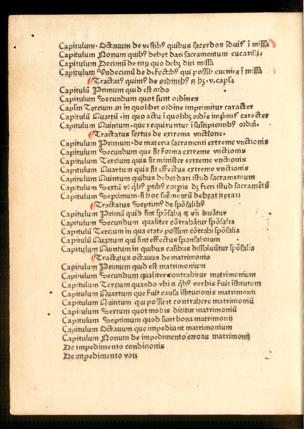 Capitulum Octauum de vestibus quibus sacerdos īduit' ī missa
Capitulum Nonum quibus debet dari sacramentum eucaristie
Capitulum Decimū de ritu quo debet dici missa
Capitulum Vndecimū de defectibus qui possūt cūcūri ī missa
Tractatus quintus de ordinibus
Capitulū Primum quid est ordo
Capitulum Secundum quot sunt ordines
Capl'm Tercium an in quolibet ordine imprimitur caracter
Capitulū Quartū in quo actu ī quolibet ordīe imprimit' caracter
Capitulum Quintum que requirūtur ī suscipientibus ordinē
Tractatus sextus de extrema vnctione
Capitulum Primum de materia sacramenti extreme vnctionis
Capitulum Secundum que sit forma extreme vnctionis
Capitulum Tercium quis sit minister extreme vnctionis
Capitulum Quartum quis sit effectus extreme vnctionis
Capitulum Quintum quibus debet dari istud sacramentum
Capitulum Sextū
Capitulum Septimum
Tractatus Septimus de sponsalibus
Capitulum Primū quid sint sponsalia
Capitulum Secundum qualiter cōtrahātur sponsalia
Capitulū Tercium in qua etate possunt cōtrahi sponsalia
Capitulū Quartum qui sint effectus sponsaliorum
Capitulum Quintum in quibus casibus dissoluūtur sponsalia
Tractatus octauus de matrimonio
Capitulum Primum quid est matrimonium
Capitulum Secundum qualiter contrahitur matrimonium
Capitulum Tercium quando vbi et quibus verbis fuit īstitutum
Capitulum Quartum que fuit causa īstitucionis matrimonii
Capitulum Quintum qui possint contrahere matrimoniū
Capitulum Sextum quot modis dicitur matrimoniū
Capitulum Septimum quod sunt bona matrimonii
Capitulum Octauum que impediunt matrimonium
Capitulum Nonum de impedimento erroris matrimonii
De impedimento condicionis
De impedimento voti